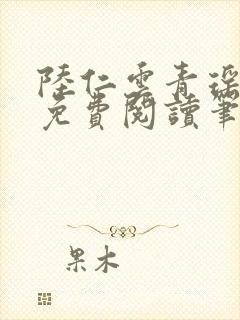 陸仁雲青瑤
免費閱讀筆
果木